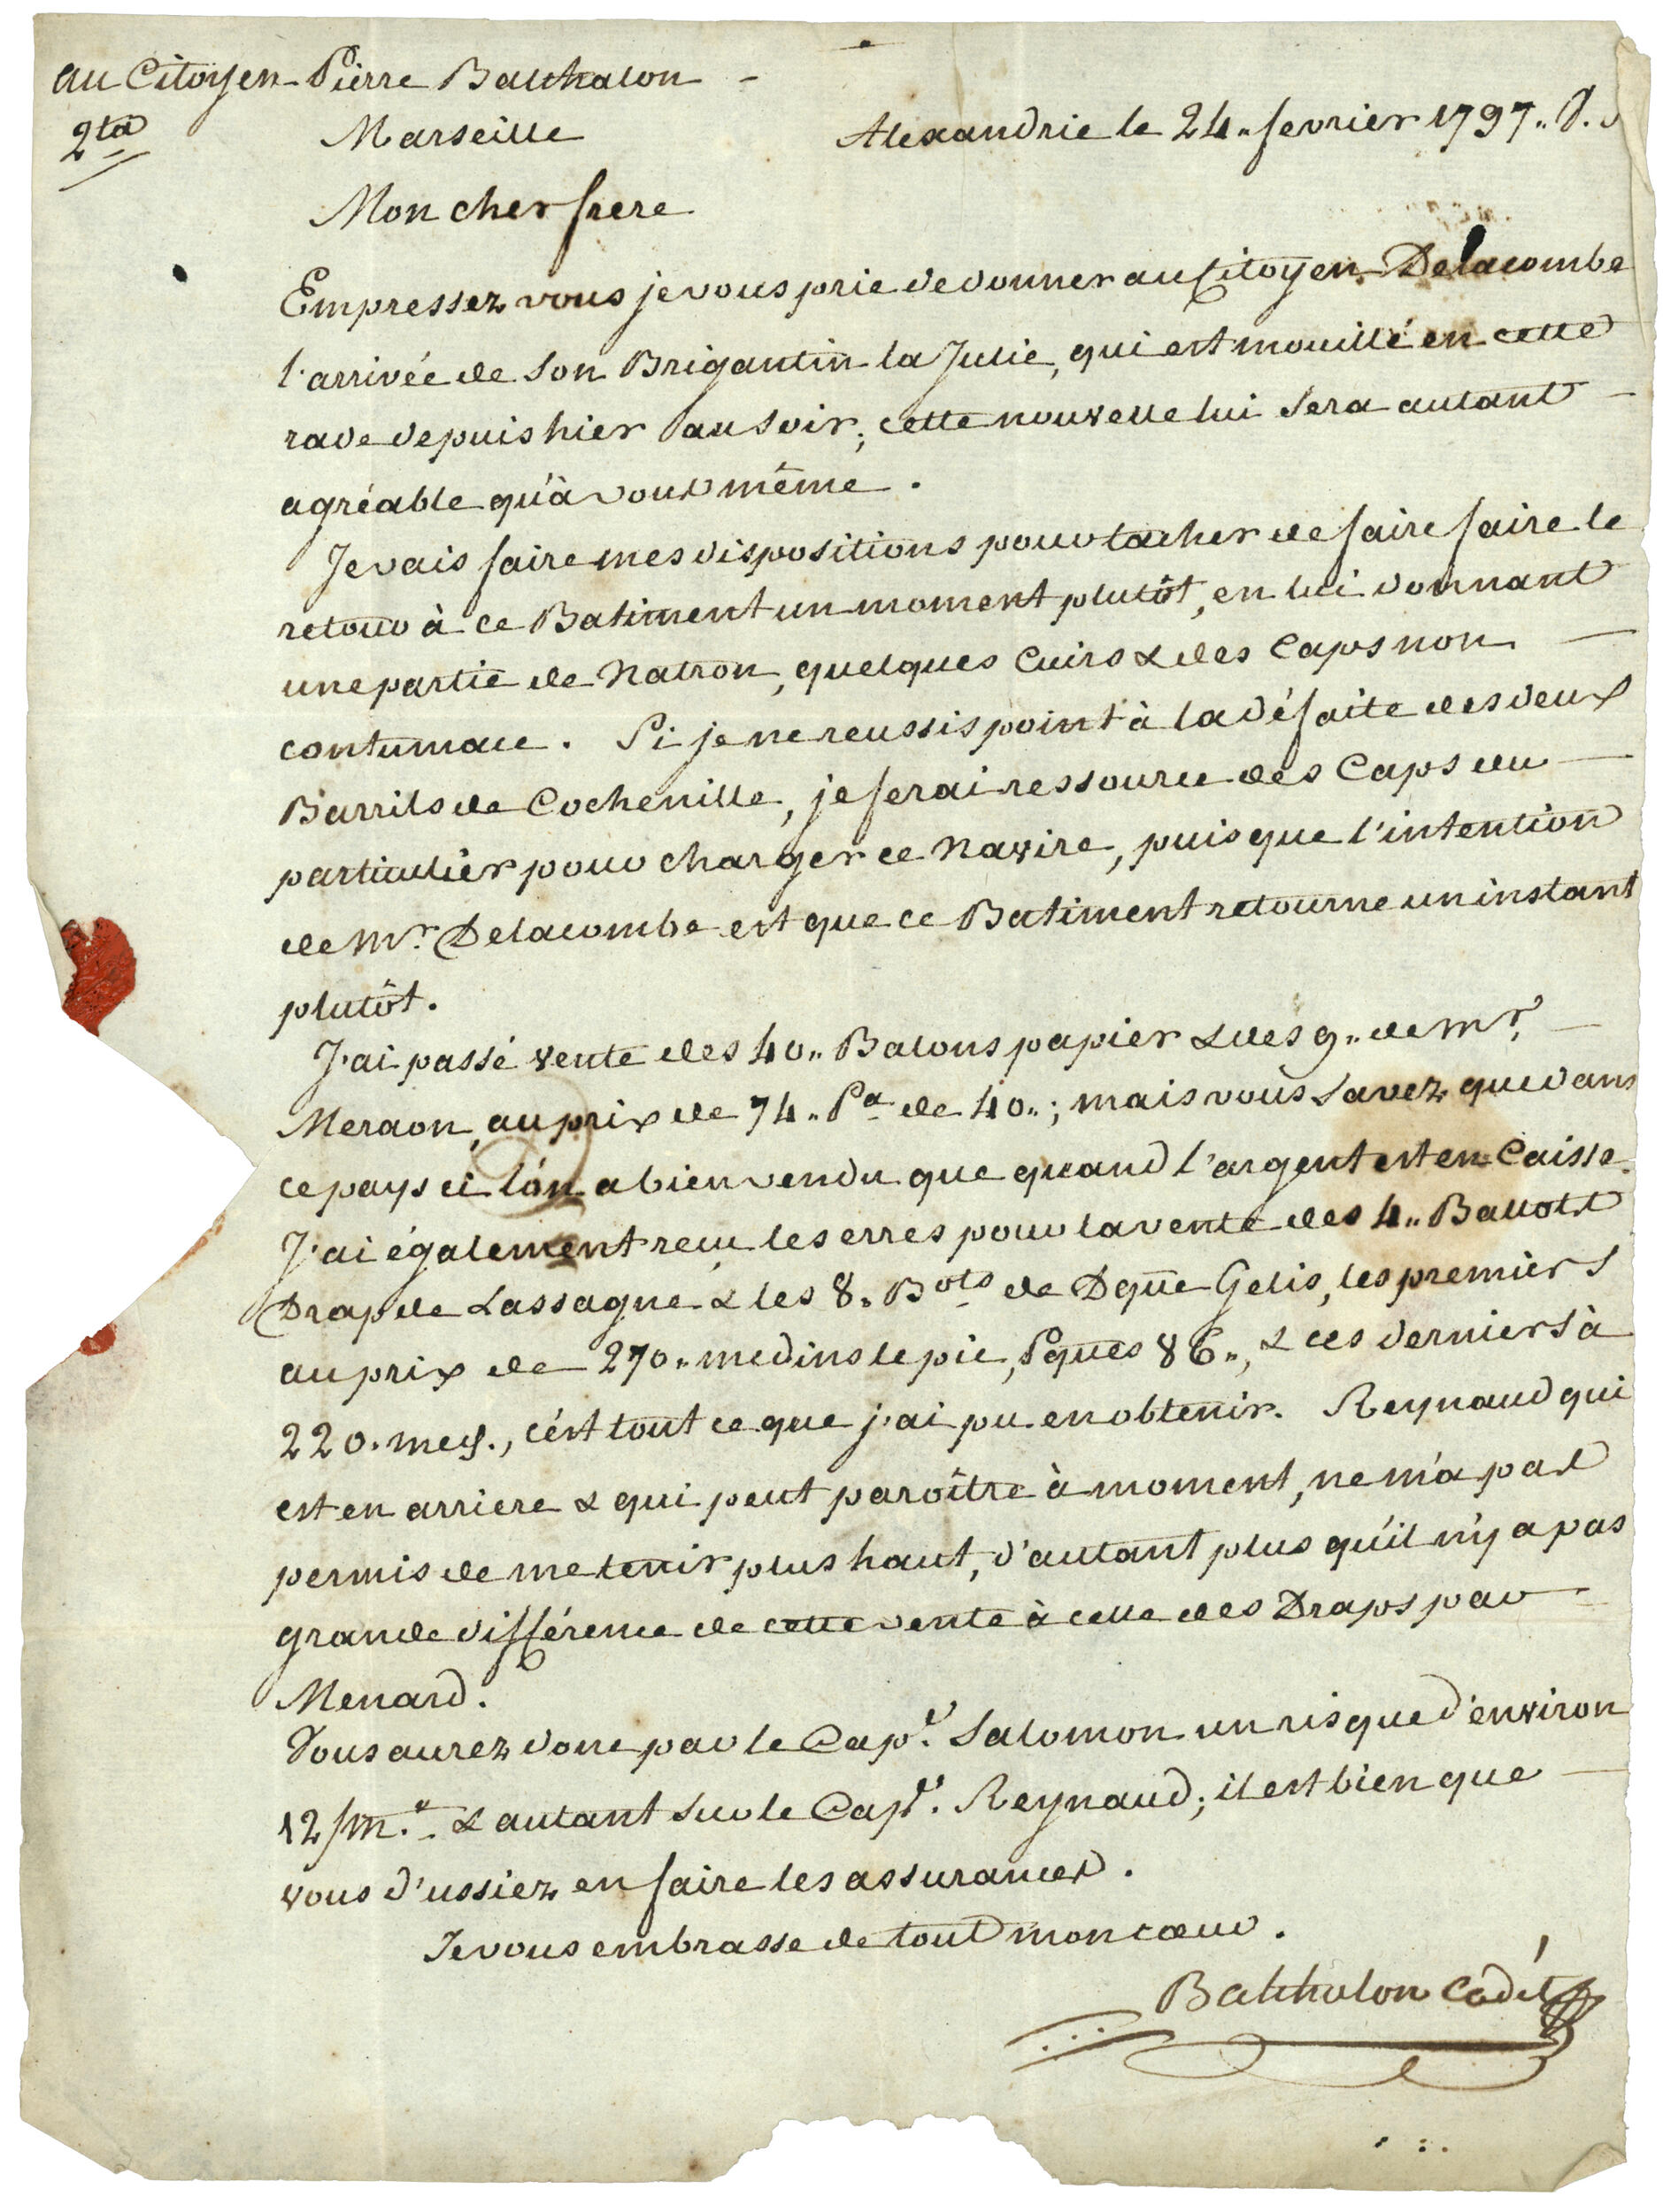 au Citoyen Pierre Balthalon
2ta Marseille
Alexandrie le 24,, fevrier 1797,, V. S
Mon cher frere
Empressez vous je vous prie de donner au Citoyen Delacombe
l'arrivée de son Brigantin la Julie, qui est mouillé en cette
rade depuis hier au soir; cette nouvelle lui sera autant
agréable qu'à vous même.
Je vais faire mes dispositions pour tacher de faire faire le
retour à ce Batiment un moment plutôt, en lui donnant
une partie de Natron, quelques Cuirs & des Caps non
contumace. Si je ne reussis point à la défaite des deux
Barrils de Cochenille, je ferai ressource des Caps du
particulier pour charger ce Navire, puisque l'intention
de Mr. Delacombe est que ce Batiment retourne un instant
plutôt.
J'ai passé vente des 40,, Balons papier & des 9,, de Mr.
Meraon, au prix de 74,, Pa de 40,,; mais vous savez que dans
ce pays ci l'on a bien vendu que quand l'argent est en Caisse.
J'ai également reçu les erres pour la vente des 4,, Ballots
Drap de Lassagne & les 8,, Bots de Dque Gelis, les premiers
au prix de 270,, medins le pic, Pques 86,,, & les derniers à
220. meds., c'est tout ce que j'ai pu en obtenir. Reynaud qui
est en arriere & qui peut paroître à moment, ne m'a pas
permis de me tenir plus haut, d'autant plus qu'il n'y a pas
grande différence de cette vente à celle des Draps par
Menard.
Vous aurez donc par le Cape. Salomon un risque d'environ
12/m. & autant sur le Cape. Reynaud; il est bien que
vous d'ussiez en faire les assurances.
Je vous embrasse de tout mon cœur.
Balthalon Cadet